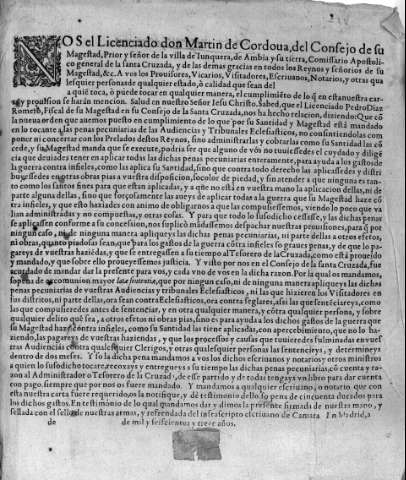 NOS el Licenciado don Martin de Cordoua, del Consejo de su
Magestad, Prior y señor de la villa de Iunquera, de Ambia y su tierra, Comissario Apostoli
co general de la santa Cruzada, y de las demas gracias en todos los Reynos y señorios de su
Magestad, &c. A vos los Prouisores, Vicarios, Visitadores, Escriuanos, Notarios, y otras qua
lesquier personas de qualquier estado, ò calidad que sean del
a quiẽ toca, ò puede tocar en qualquier manera, el cumplimiẽto de lo q̃ en esta nuestra car
ta y prouision se harán mencion. Salud en nuestro Señor Iesu Christo. Sabed, que el Licenciado Pedro Diaz
Romero, Fiscal de su Magestad en su Consejo de la Santa Cruzada, nos ha hecho relacion, diziendo: Que cõ
la nueua orden que auemos puesto en cumplimiento de lo que por su Santidad y Magestad està mandado
en lo tocante a las penas pecuniarias de las Audiencias y Tribunales Eclesiasticos, no consintiendolas com
poner ni concertar con los Prelados destos Reynos, sino administrarlas y cobrarlas como su Santidad las cõ
cede, y su Magestad manda que se execute, podria ser que alguno de vós no tuuiessedes el cuydado y diligẽ
cia que deuiades tener en aplicar todas las dichas penas pecuniarias enteramente, para ayuda a los gastos de
la guerra contra infieles, como las aplica su Santidad, sino que contra todo derecho las aplicassedes y distri
buyessedes en otras obras pias a vuestra disposicion, socolor de piedad, y sin atender a que ninguna es tan
to como los santos fines para que estan aplicadas, y a que no està en vuestra mano la aplicacion dellas, ni de
parte alguna dellas, sino que forçosamente las aueys de aplicar todas a la guerra que su Magestad haze cõ
tra infieles, y que esto hariades con animo de obligarnos a que las compusiessemos, viendo lo poco que va
lian administradas y no compuestas, y otras cosas. Y para que todo lo susodicho cessasse, y las dichas penas
se aplicassen conforme a su concession, nos suplicò mãdassemos despachar nuestras prouisiones, para q̃ por
ningun caso, ni de ninguna manera apliqueys las dichas penas pecuniarias, ni parte dellas a otros efetos,
ni obras, quanto piadosas sean, que para los gastos de la guerra cõtra infieles so graues penas, y de que lo pa
gareys de vuestras haziẽdas, y que se entreguẽ a su tiempo al Tesorero de la Cruzada, como està proueido
y mandado, y que sobre ello proueyessemos justicia. Y visto por nos en el Consejo de la santa Cruzada, fue
acordado de mandar dar la presente para vos, y cada vno de vos en la dicha razon. Por la qual os mandamos,
sopena de excomunion mayor latæ sententiæ, que por ningun caso, ni de ninguna manera apliqueys las dichas
penas pecuniarias de vuestras Audiencias y tribunales Eclesiasticos, ni las que hizieren los Visitadores en
sus distritos, ni parte dellas, ora sean contra Eclesiasticos, ora contra seglares, assi las que sentẽciareys, como
las que compusieredes antes de sentenciar, y en otra qualquier manera, y cõtra qualquier persona, y sobre
qualquier delito que sea, a otros efetos ni obras pias, sino es para ayuda a los dichos gastos de la guerra que
su Magestad haze contra infieles, como su Santidad las tiene aplicadas, con apercebimiento, que no lo ha-
ziendo, las pagareys de vuestras haziendas, y que los processos y causas que tuuieredes fulminadas en vues
tras Audiencias contra qualesquier Clerigos, y otras qualesquier personas las sentencieys, y determineys
dentro de dos meses. Y so la dicha pena mandamos a vos los dichos escriuanos y notarios y otros ministros
a quien lo susodicho tocare, recoxays y entregueys a su tiempo las dichas penas pecuniarias, cõ cuenta y ra-
zon al Administrador o Tesorero de la Cruzada, de esse partido y de todas tengays vn libro para dar cuenta
con pago siempre que por nos os fuere mandado. Y mandamos a qualquier escriuano, o notario que con
esta nuestra carta fuere requerido, os la notifique, y dè testimonio dello so pena de cincuenta ducados para
los dichos gastos. En testimonio de lo qual mandamos dar y dimos la presente firmada de nuestra mano, y
sellada con el sello de nuestras armas, y refrendada del infrascripto escriuano de Camara. En Madrid, a
de de mil y seiscientos y treze años.